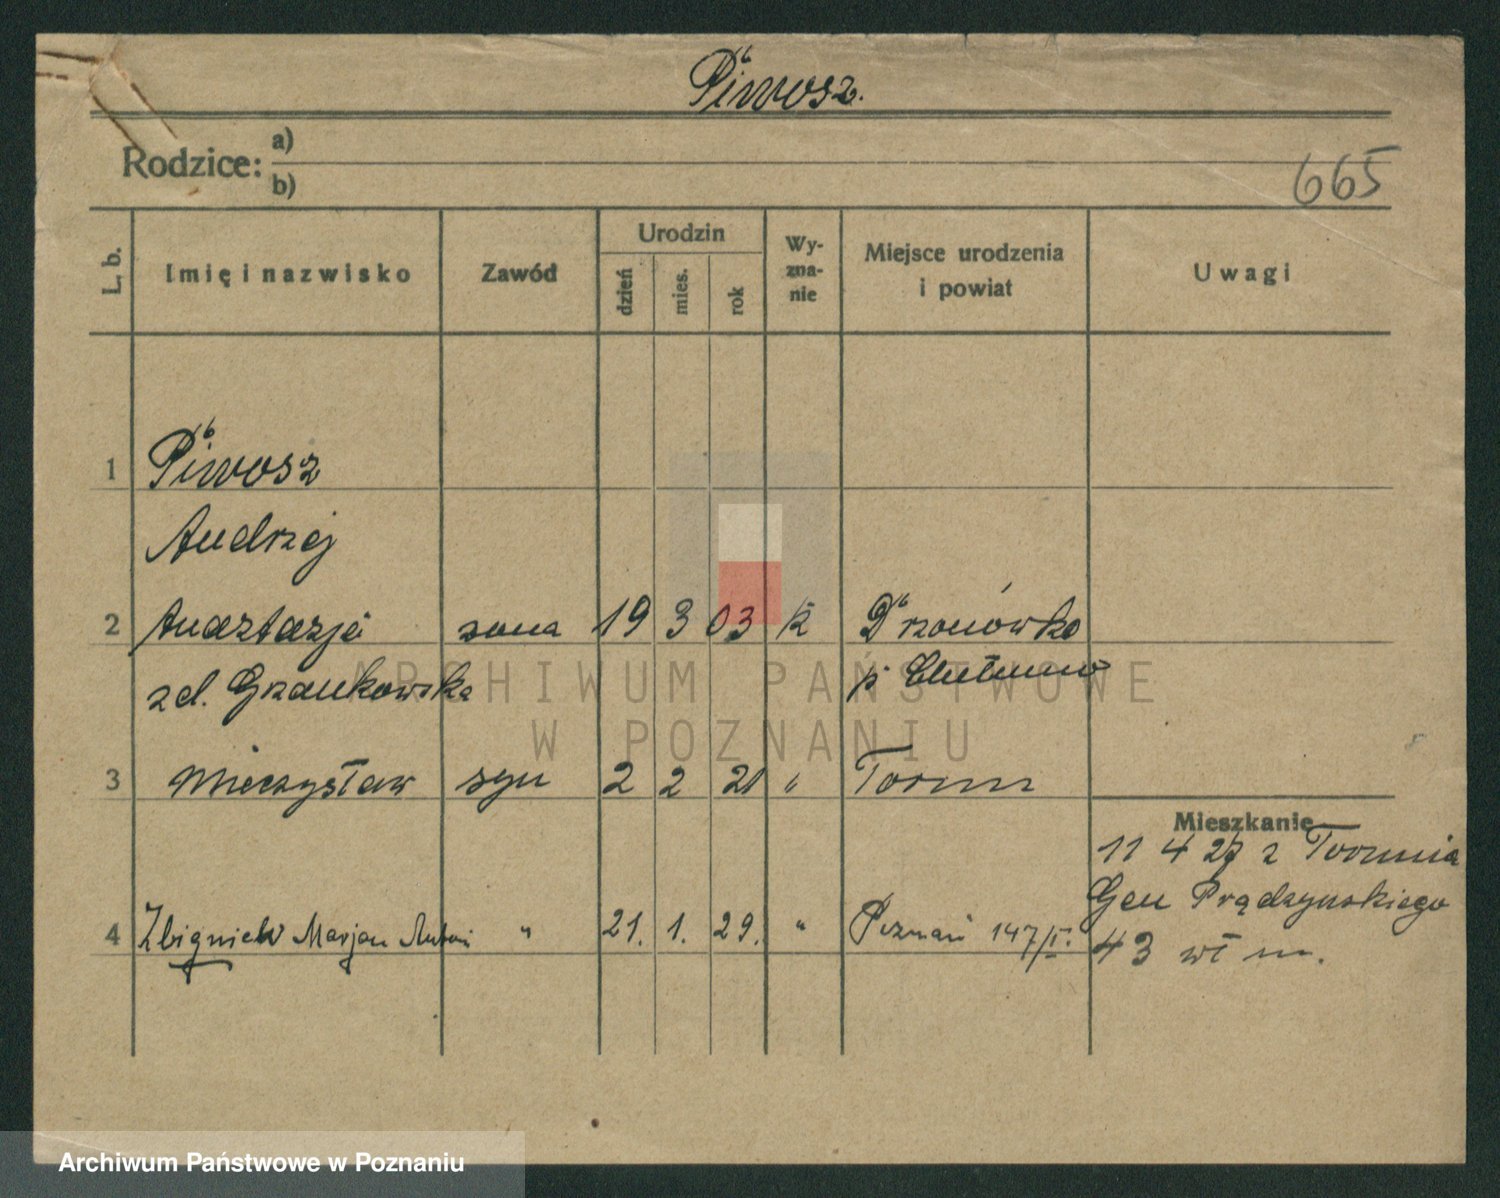 Piwosz.
Rodzice: a)
b)
665
L. b. Imię i nazwisko Zawód Urodzin dzień mies. rok Wy-zna-nie Miejsce urodzenia i powiat Uwagi
1 Piwosz
Andrzej
2 Anaztazja żona 19 3 03 k Drzonówko
zd. Grankowska p. Chełmno
ARCHIWUM PAŃSTWOWE
W POZNANIU
3 Mieczysław syn 2 2 21 " Toruń
Mieszkanie
11 4 27 z Torunia
Gen Prądzynskiego
4 Zbigniew Marjan Antoni " 21. 1. 29. " Poznań 147/I.
43 wł m.
Archiwum Państwowe w Poznaniu